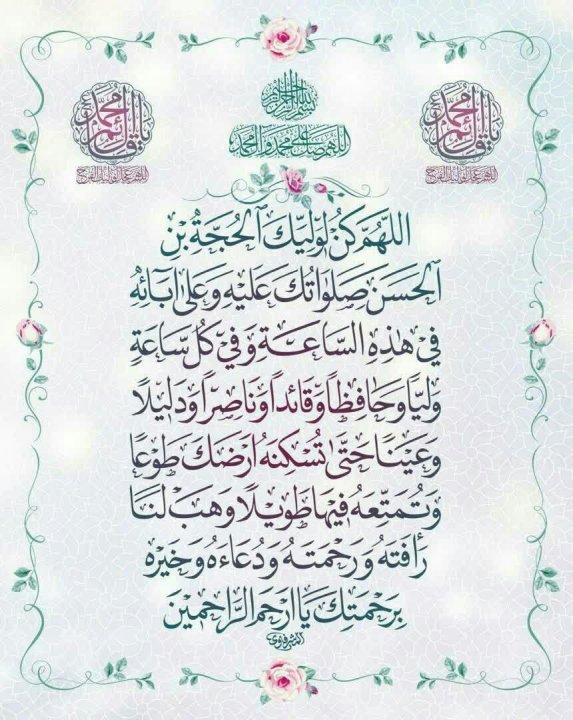 بسم الله الرحمن الرحيم
اللهم صل على محمد وآل محمد
يا قائم آل محمد
اللهم عجل لوليك الفرج
يا قائم آل محمد
اللهم عجل لوليك الفرج
اللَّهُمَّ كُنْ لِوَلِيِّكَ الْحُجَّةِ بْنِ
الْحَسَنِ صَلَوَاتُكَ عَلَيْهِ وَعَلَى آبَائِهِ
فِي هٰذِهِ السَّاعَةِ وَفِي كُلِّ سَاعَةٍ
وَلِيًّا وَحَافِظًا وَقَائِدًا وَنَاصِرًا وَدَلِيلًا
وَعَيْنًا حَتَّى تُسْكِنَهُ أَرْضَكَ طَوْعًا
وَتُمَتِّعَهُ فِيهَا طَوِيلًا وَهَبْ لَنَا
رَأْفَتَهُ وَرَحْمَتَهُ وَدُعَاءَهُ وَخَيْرَهُ
بِرَحْمَتِكَ يَا أَرْحَمَ الرَّاحِمِينَ